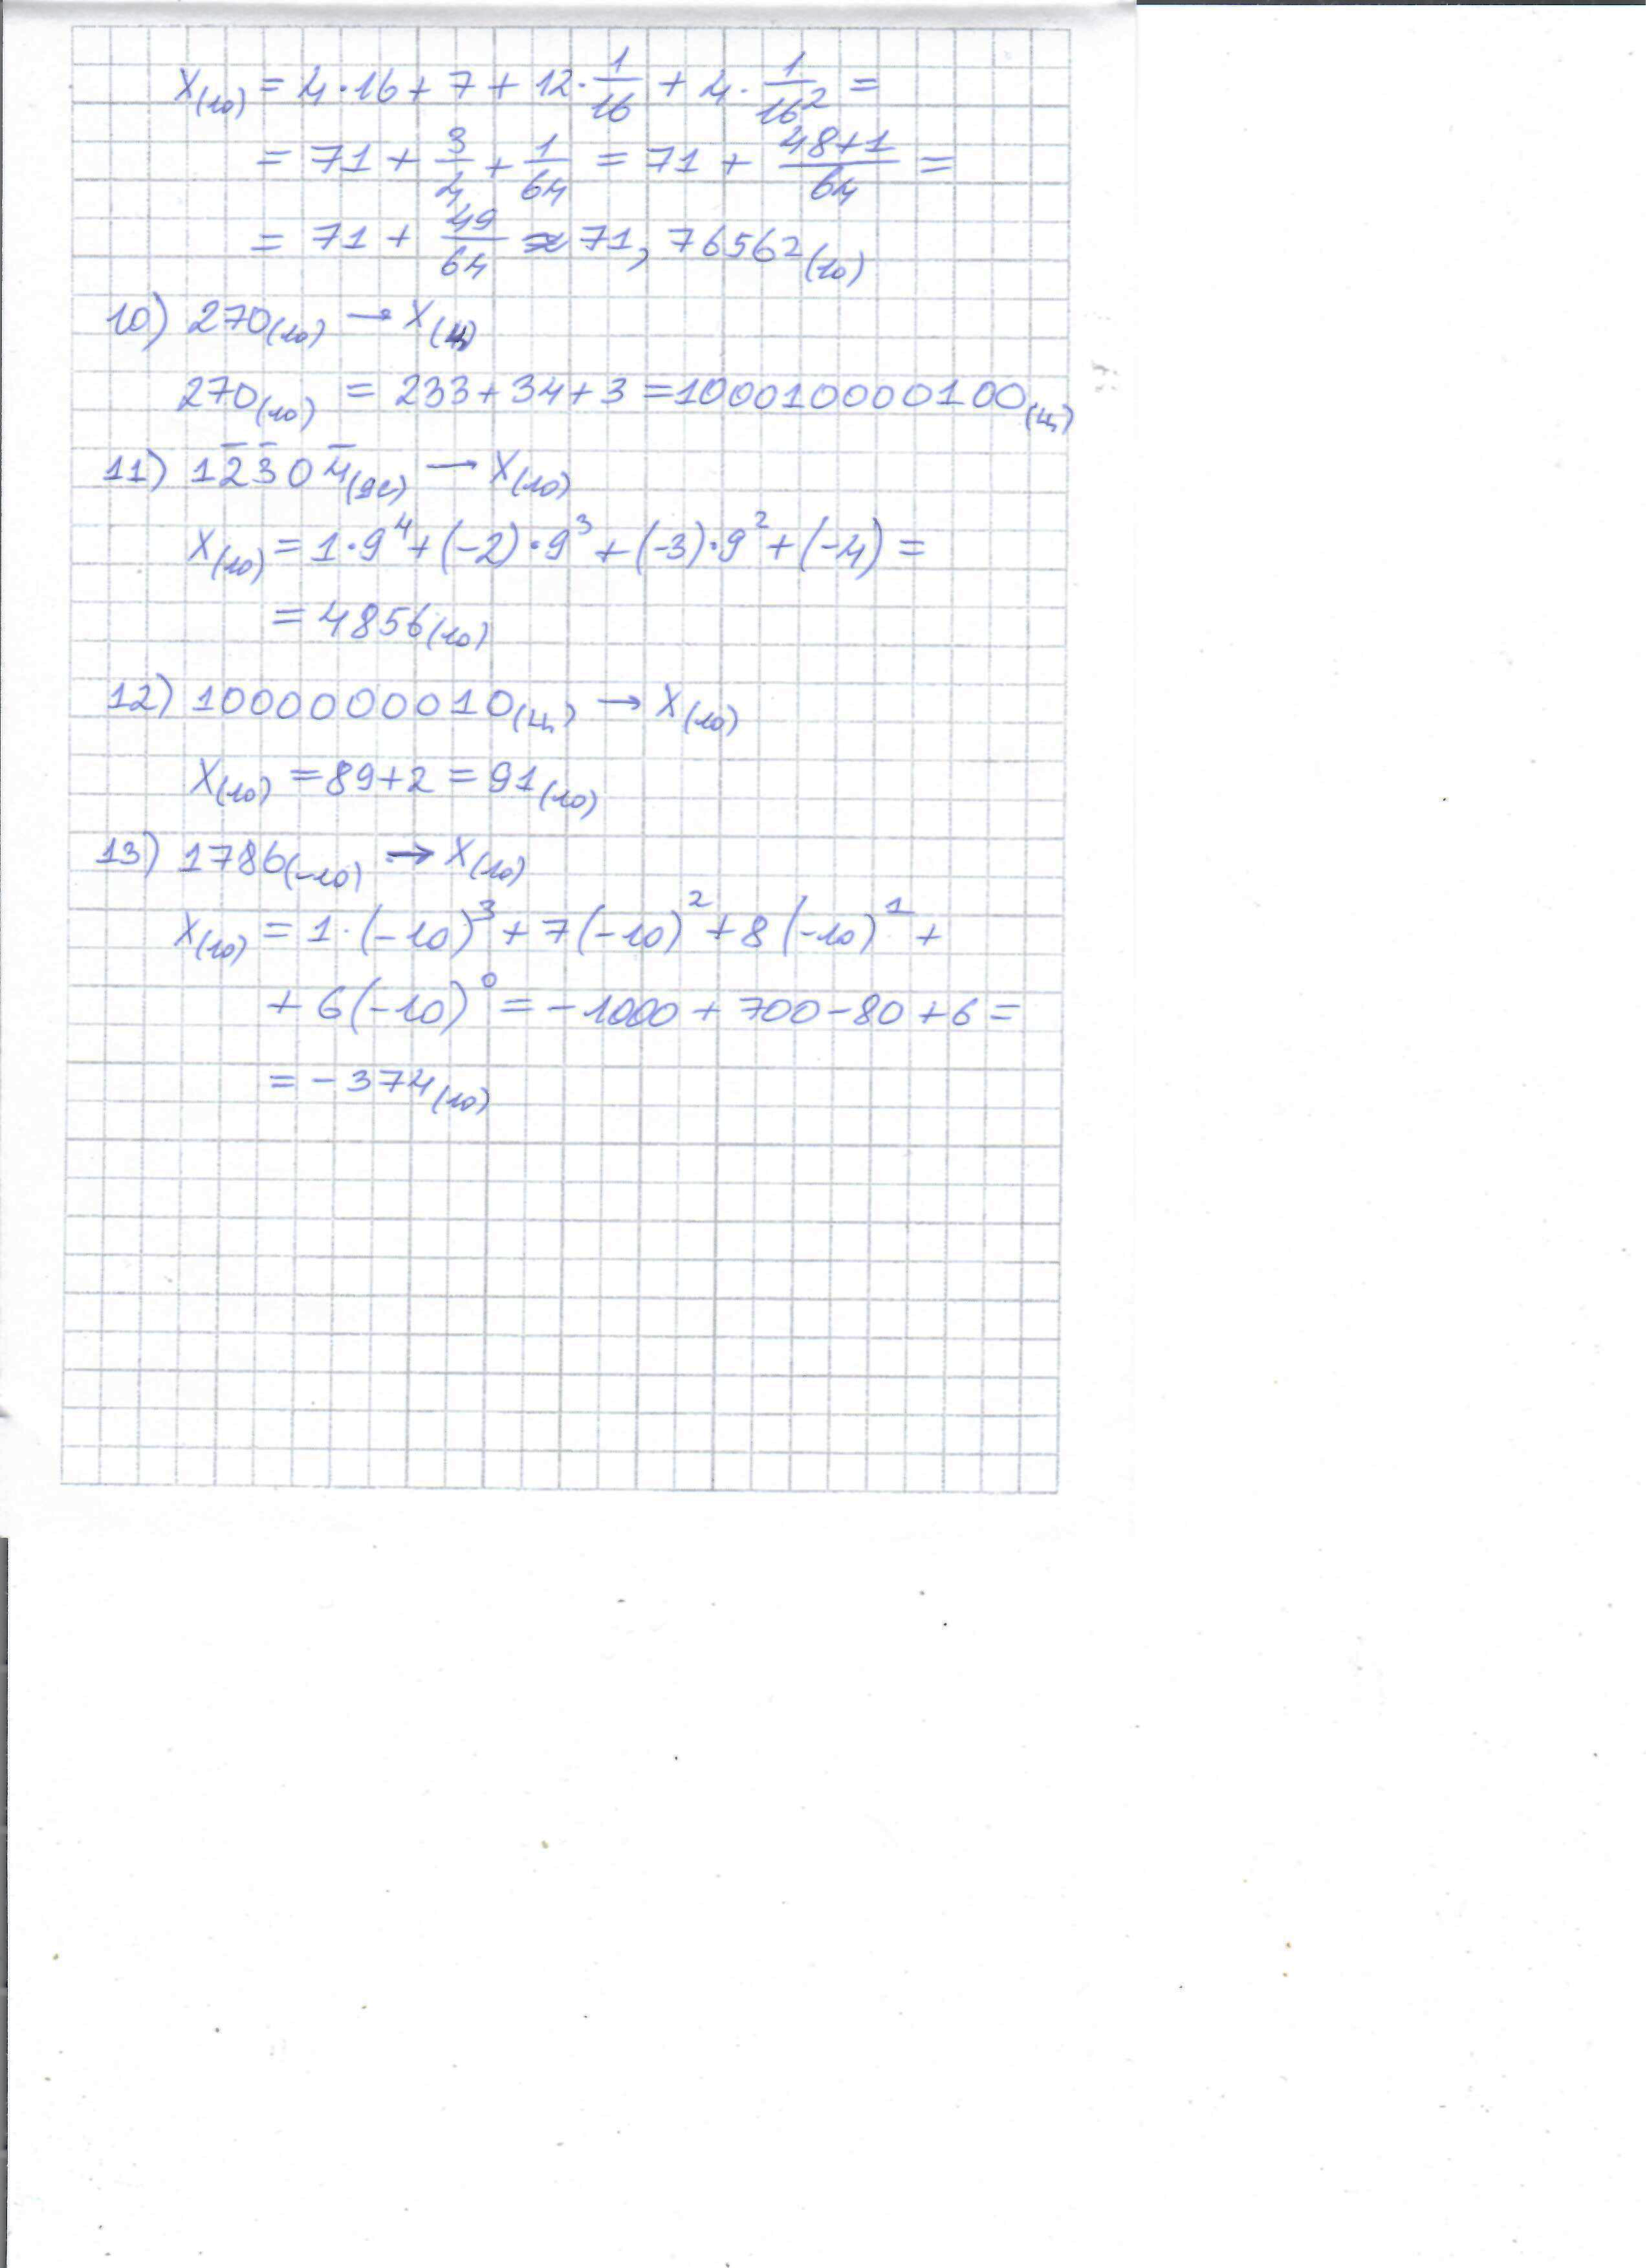 X(10) = 4·16 + 7 + 12·1/16 + 4·1/16² =
= 71 + 3/4 + 1/64 = 71 + (48+1)/64 =
= 71 + 49/64 ≈ 71,76562(10)
10) 270(10) → X(ц)
270(10) = 233 + 34 + 3 = 100010000100(ц)
11) 12̅3̅04̅(9с) → X(10)
X(10) = 1·9⁴ + (-2)·9³ + (-3)·9² + (-4) =
= 4856(10)
12) 1000000010(ц) → X(10)
X(10) = 89+2 = 91(10)
13) 1786(-10) → X(10)
X(10) = 1·(-10)³ + 7(-10)² + 8(-10)¹ +
+ 6(-10)⁰ = -1000 + 700 - 80 + 6 =
= - 374(10)